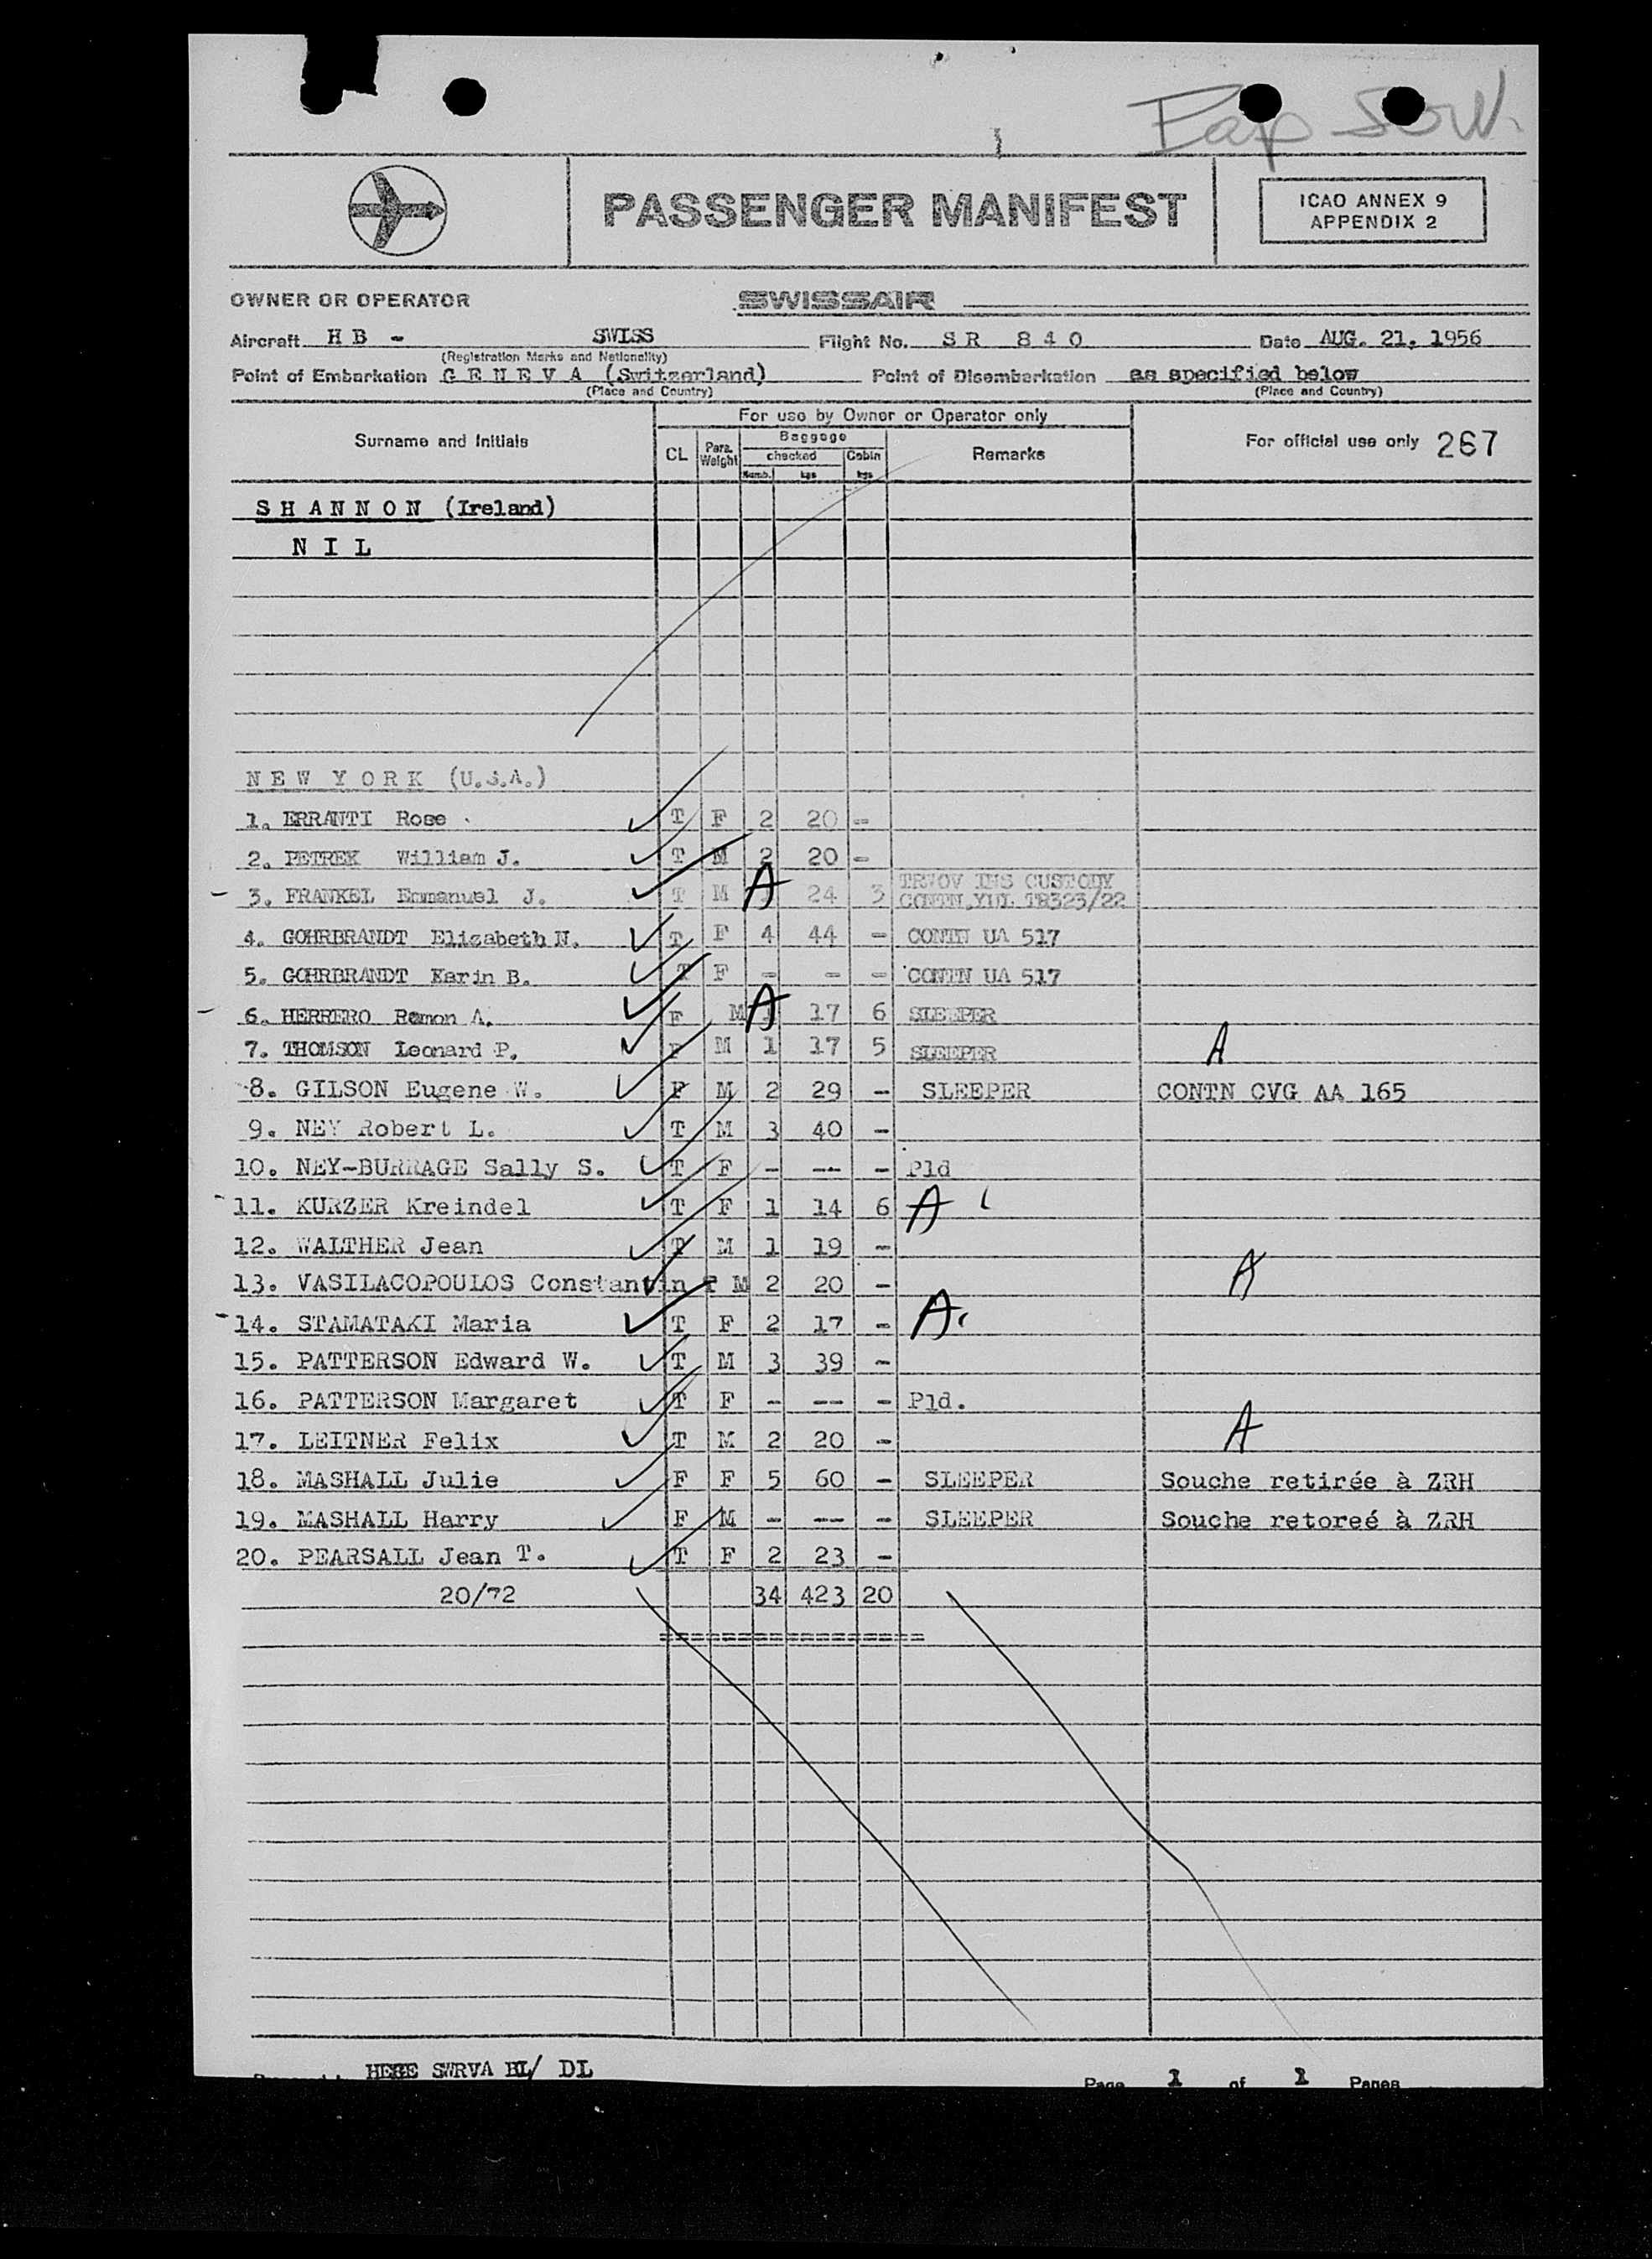 PASSENGER MANIFEST
ICAO ANNEX 9
APPENDIX 2
OWNER OR OPERATOR SWISSAIR
Aircraft H B - SWISS Flight No. S R 8 4 0 Date AUG. 21, 1956
(Registration Marks and Nationality)
Point of Embarkation G E N E V A (Switzerland) Point of Disembarkation as specified below
(Place and Country) (Place and Country)
For use by Owner or Operator only
Surname and Initials CL Para. Weight Baggage checked Cabin Remarks For official use only 267
Numb. kgs kgs
S H A N N O N (Ireland)
N I L
N E W Y O R K (U.S.A.)
1. ERRANTI Rose T F 2 20 -
2. PETREK William J. T M 2 20 -
- 3. FRANKEL Emmanuel J. T M A 24 3 CUSTODY
CONTN YUL TR323/22
4. GOHRBRANDT Elizabeth N. T F 4 44 - CONTN UA 517
5. GOHRBRANDT Karin B. T F - - - CONTN UA 517
- 6. HERRERO Ramon A. F M 1 A 17 6 SLEEPER
7. THOMSON Leonard P. F M 1 17 5 SLEEPER A
8. GILSON Eugene W. F M 2 29 - SLEEPER CONTN CVG AA 165
9. NEY Robert L. T M 3 40 -
10. NEY-BURRAGE Sally S. T F - -- - Pld
11. KURZER Kreindel T F 1 14 6 A
12. WALTHER Jean T M 1 19 -
13. VASILACOPOULOS Constantin T M 2 20 - A
14. STAMATAKI Maria T F 2 17 - A
15. PATTERSON Edward W. T M 3 39 -
16. PATTERSON Margaret T F - -- - Pld.
17. LEITNER Felix T M 2 20 - A
18. MASHALL Julie F F 5 60 - SLEEPER Souche retirée à ZRH
19. MASHALL Harry F M - -- - SLEEPER Souche retoreé à ZRH
20. PEARSALL Jean T. T F 2 23 -
20/72 34 423 20
=================
SWRVA DL
Page 1 of 1 Pages